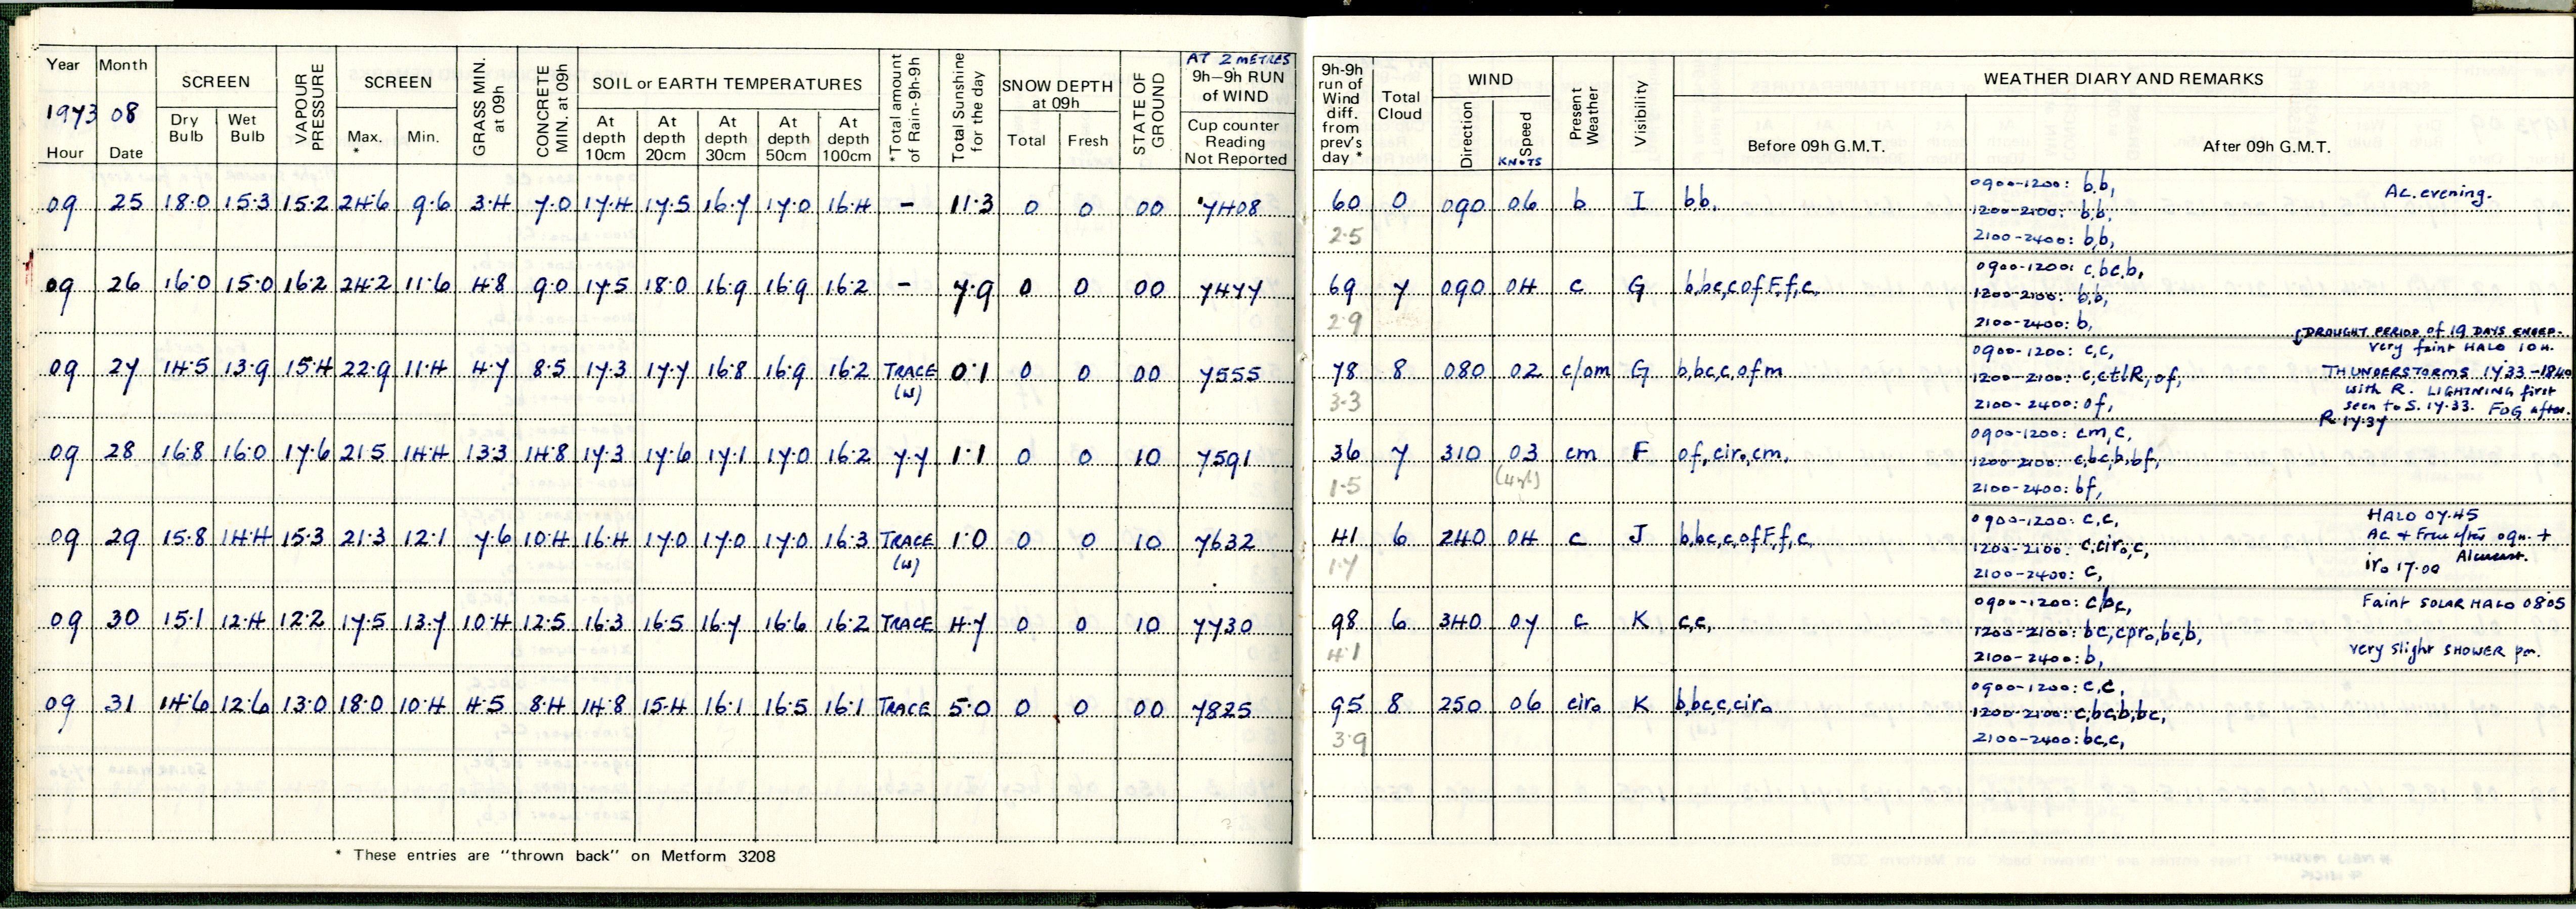 Year Month
1973 08
Hour Date
SCREEN
Dry Bulb Wet Bulb
VAPOUR PRESSURE
SCREEN
Max. * Min.
GRASS MIN. at 09h
CONCRETE MIN. at 09h
SOIL or EARTH TEMPERATURES
At depth 10cm At depth 20cm At depth 30cm At depth 50cm At depth 100cm
*Total amount of Rain-9h-9h
Total Sunshine for the day
SNOW DEPTH at 09h
Total Fresh
STATE OF GROUND
AT 2 METRES
9h–9h RUN of WIND
Cup counter Reading Not Reported
9h-9h run of Wind diff. from prev's day *
Total Cloud
WIND
Direction Speed KNOTS
Present Weather
Visibility
WEATHER DIARY AND REMARKS
Before 09h G.M.T. After 09h G.M.T.
09 25 18.0 15.3 15.2 24.6 9.6 3.4 7.0 17.4 17.5 16.7 17.0 16.4 - 11.3 0 0 00 7408 60 0 090 06 b I bb,
2.5
0900-1200: b,b,
1200-2100: b,b,
2100-2400: b,b,
Ac. evening.
09 26 16.0 15.0 16.2 24.2 11.6 4.8 9.0 17.5 18.0 16.9 16.9 16.2 - 7.9 0 0 00 7477 69 7 090 04 c G b,bc,c,of,F,f,c,
2.9
0900-1200: c,bc,b,
1200-2100: b,b,
2100-2400: b,
09 27 14.5 13.9 15.4 22.9 11.4 4.7 8.5 17.3 17.7 16.8 16.9 16.2 TRACE (w) 0.1 0 0 00 7555 78 8 080 02 c/om G b,bc,c,ofm
3.3
0900-1200: c,c,
1200-2100: c,ctlR,of,
2100-2400: of,
DROUGHT PERIOD of 19 DAYS ENDED.
very faint HALO 10H.
THUNDERSTORMS 17.33-1840
with R. LIGHTNING first
seen to S. 17.33. FOG after.
R.17.37
09 28 16.8 16.0 17.6 21.5 14.4 13.3 14.8 17.3 17.6 17.1 17.0 16.2 7.7 1.1 0 0 10 7591 36 7 310 03 cm F of,ciro,cm,
1.5
0900-1200: cm,c,
1200-2100: c,bc,b,bf,
2100-2400: bf,
09 29 15.8 14.4 15.3 21.3 12.1 7.6 10.4 16.4 17.0 17.0 17.0 16.3 TRACE (w) 1.0 0 0 10 7632 41 6 240 04 c J b,bc,c,of,F,f,c,
1.7
0900-1200: c,c,
1200-2100: c,ciro,c,
2100-2400: c,
HALO 07.45
iro 17.00
09 30 15.1 12.4 12.2 17.5 13.7 10.4 12.5 16.3 16.5 16.7 16.6 16.2 TRACE 4.7 0 0 10 7730 98 6 340 07 c K c,c,
4.1
0900-1200: c,bc,
1200-2100: bc,cpro,bc,b,
2100-2400: b,
Faint SOLAR HALO 0805
very slight SHOWER pm.
09 31 14.6 12.6 13.0 18.0 10.4 4.5 8.4 14.8 15.4 16.1 16.5 16.1 TRACE 5.0 0 0 00 7825 95 8 250 06 ciro K b,bc,c,ciro
3.9
0900-1200: c,c,
1200-2100: c,bc,b,bc,
2100-2400: bc,c,
* These entries are "thrown back" on Metform 3208